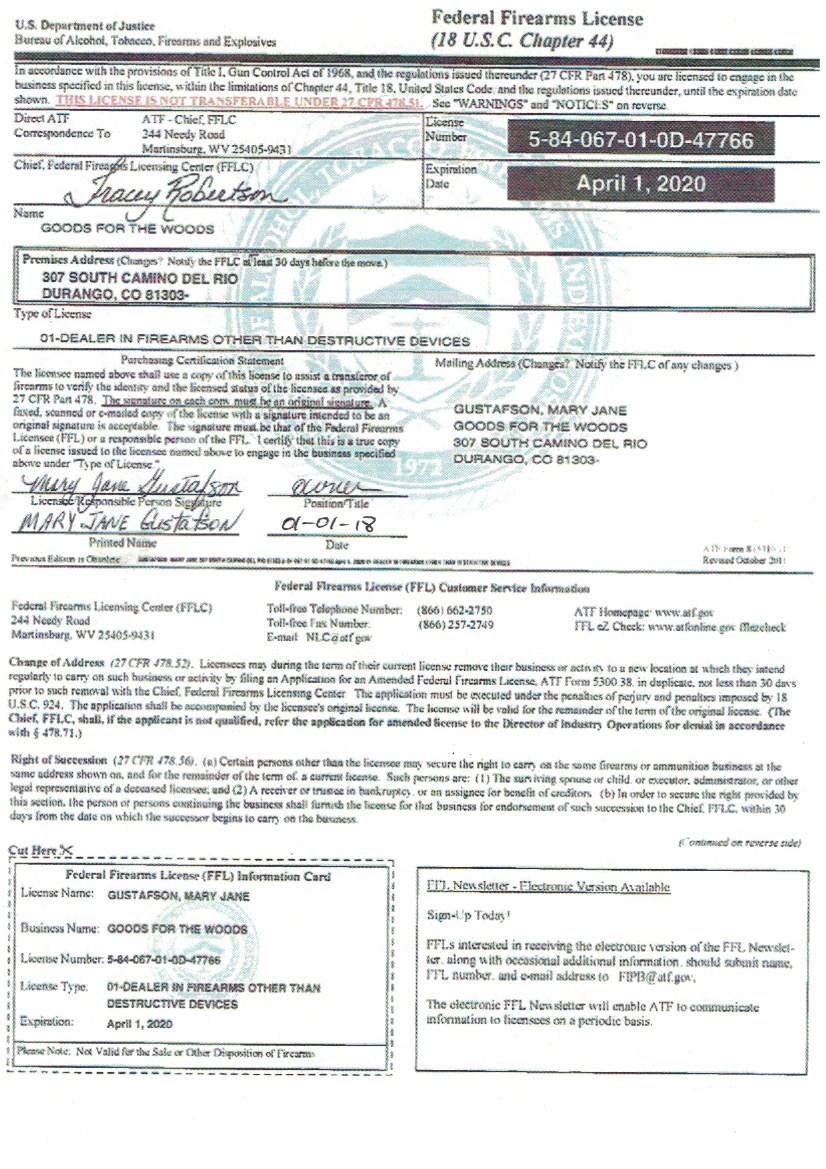 U.S. Department of Justice
Bureau of Alcohol, Tobacco, Firearms and Explosives
Federal Firearms License
(18 U.S.C. Chapter 44)
In accordance with the provisions of Title I, Gun Control Act of 1968, and the regulations issued thereunder (27 CFR Part 478), you are licensed to engage in the
business specified in this license, within the limitations of Chapter 44, Title 18, United States Code, and the regulations issued thereunder, until the expiration date
shown. THIS LICENSE IS NOT TRANSFERABLE UNDER 27 CFR 478.51. See "WARNINGS" and "NOTICES" on reverse.
Direct ATF
Correspondence To
ATF - Chief, FFLC
244 Needy Road
Martinsburg, WV 25405-9431
License
Number
5-84-067-01-0D-47766
Chief, Federal Firearms Licensing Center (FFLC)
Tracey Robertson
Expiration
Date
April 1, 2020
Name
GOODS FOR THE WOODS
Premises Address (Changes? Notify the FFLC at least 30 days before the move.)
307 SOUTH CAMINO DEL RIO
DURANGO, CO 81303-
Type of License
01-DEALER IN FIREARMS OTHER THAN DESTRUCTIVE DEVICES
Purchasing Certification Statement
The licensee named above shall use a copy of this license to assist a transferor of
firearms to verify the identity and the licensed status of the licensee as provided by
27 CFR Part 478. The signature on each copy must be an original signature. A
faxed, scanned or e-mailed copy of the license with a signature intended to be an
original signature is acceptable. The signature must be that of the Federal Firearms
Licensee (FFL) or a responsible person of the FFL. I certify that this is a true copy
of a license issued to the licensee named above to engage in the business specified
above under "Type of License."
Mailing Address (Changes? Notify the FFLC of any changes )
GUSTAFSON, MARY JANE
GOODS FOR THE WOODS
307 SOUTH CAMINO DEL RIO
DURANGO, CO 81303-
1972
Mary Jane Gustafson
owner
Licensee/Responsible Person Signature
Position/Title
MARY JANE GUSTAFSON
01-01-18
Printed Name
Date
Previous Edition is Obsolete
ATF Form 8 (5310.11)
Revised October 2011
Federal Firearms License (FFL) Customer Service Information
Federal Firearms Licensing Center (FFLC)
244 Needy Road
Martinsburg, WV 25405-9431
Toll-free Telephone Number: (866) 662-2750
Toll-free Fax Number: (866) 257-2749
E-mail NLC@atf.gov
ATF Homepage: www.atf.gov
FFL eZ Check: www.atfonline.gov/fflezcheck
Change of Address (27 CFR 478.52). Licensees may during the term of their current license remove their business or activity to a new location at which they intend
regularly to carry on such business or activity by filing an Application for an Amended Federal Firearms License, ATF Form 5300.38, in duplicate, not less than 30 days
prior to such removal with the Chief, Federal Firearms Licensing Center. The application must be executed under the penalties of perjury and penalties imposed by 18
U.S.C. 924. The application shall be accompanied by the licensee's original license. The license will be valid for the remainder of the term of the original license. (The
Chief, FFLC, shall, if the applicant is not qualified, refer the application for amended license to the Director of Industry Operations for denial in accordance
with § 478.71.)
Right of Succession (27 CFR 478.56). (a) Certain persons other than the licensee may secure the right to carry on the same firearms or ammunition business at the
same address shown on, and for the remainder of the term of, a current license. Such persons are: (1) The surviving spouse or child, or executor, administrator, or other
legal representative of a deceased licensee; and (2) A receiver or trustee in bankruptcy, or an assignee for benefit of creditors. (b) In order to secure the right provided by
this section, the person or persons continuing the business shall furnish the license for that business for endorsement of such succession to the Chief, FFLC, within 30
days from the date on which the successor begins to carry on the business.
(Continued on reverse side)
Cut Here
Federal Firearms License (FFL) Information Card
License Name: GUSTAFSON, MARY JANE
Business Name: GOODS FOR THE WOODS
License Number: 5-84-067-01-0D-47766
License Type: 01-DEALER IN FIREARMS OTHER THAN
DESTRUCTIVE DEVICES
Expiration: April 1, 2020
Please Note: Not Valid for the Sale or Other Disposition of Firearms
FFL Newsletter - Electronic Version Available
Sign-Up Today!
FFLs interested in receiving the electronic version of the FFL Newslet-
ter, along with occasional additional information, should submit name,
FFL number, and e-mail address to FIPB@atf.gov.
The electronic FFL Newsletter will enable ATF to communicate
information to licensees on a periodic basis.